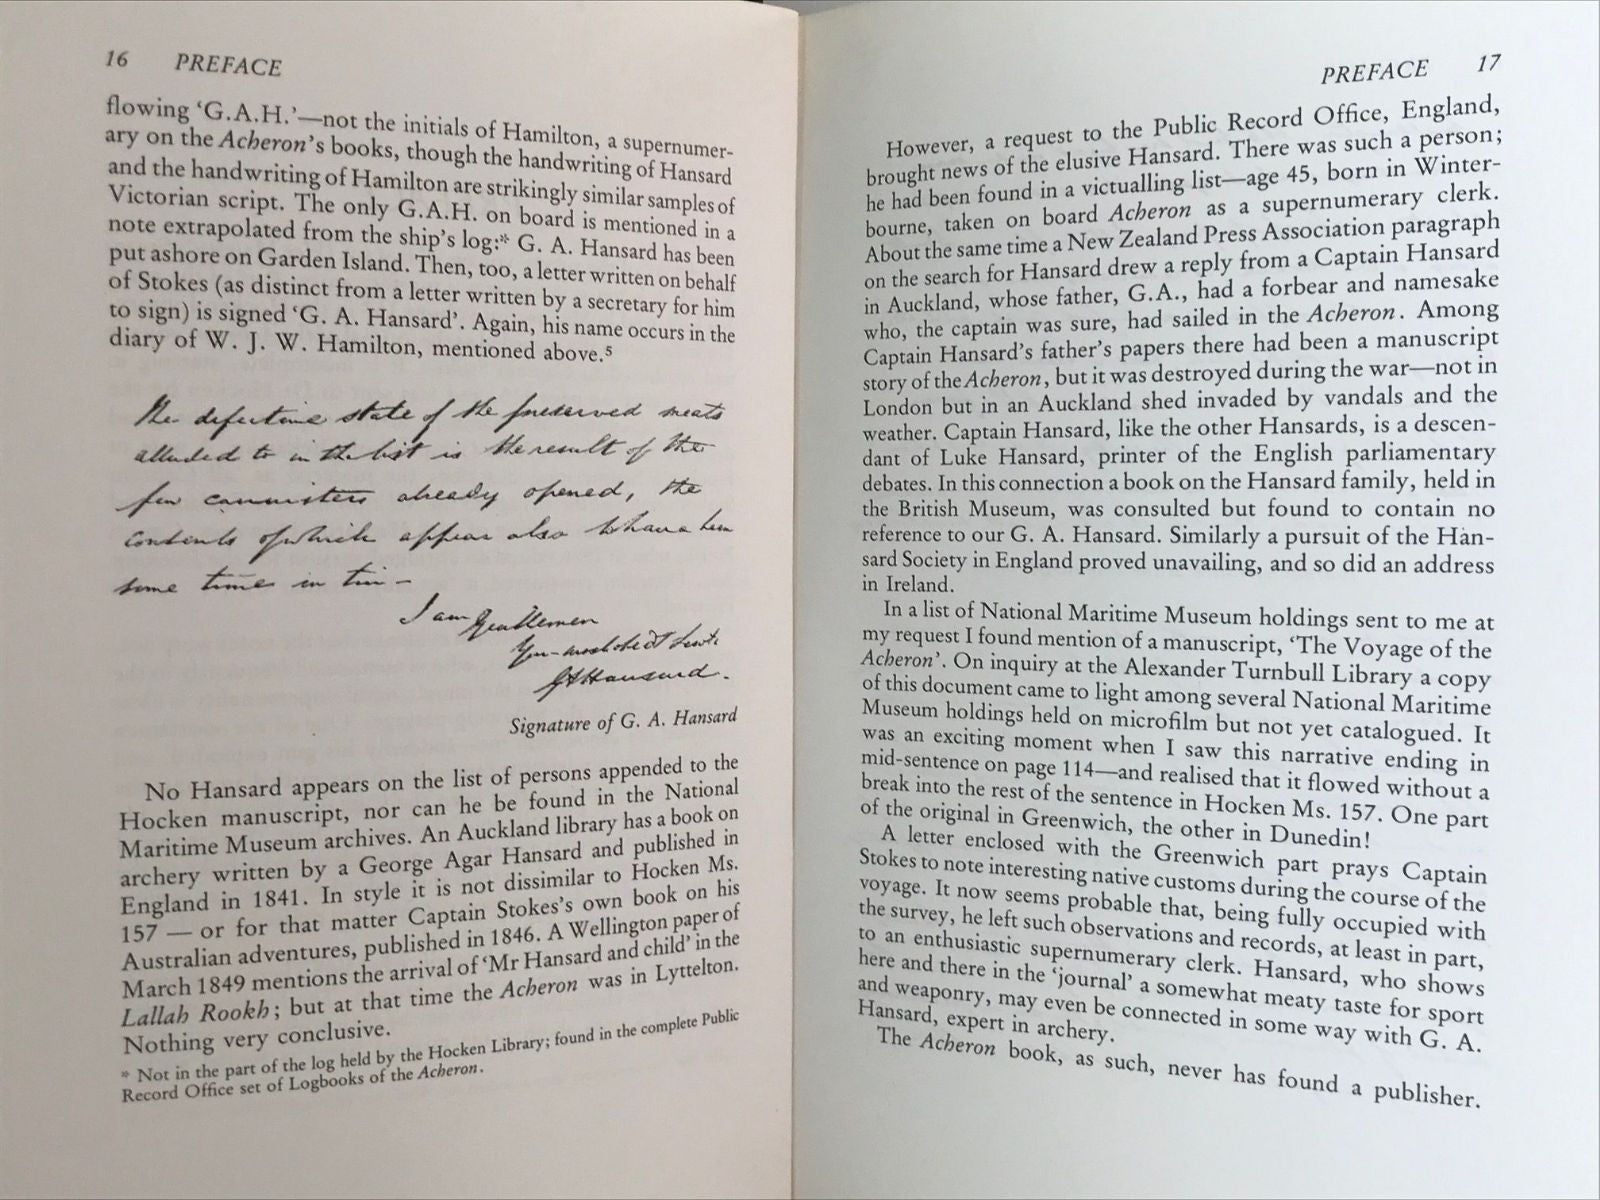 16 PREFACE
flowing ‘G.A.H.’—not the initials of Hamilton, a supernumer-
ary on the Acheron’s books, though the handwriting of Hansard
and the handwriting of Hamilton are strikingly similar samples of
Victorian script. The only G.A.H. on board is mentioned in a
note extrapolated from the ship’s log:* G. A. Hansard has been
put ashore on Garden Island. Then, too, a letter written on behalf
of Stokes (as distinct from a letter written by a secretary for him
to sign) is signed ‘G. A. Hansard’. Again, his name occurs in the
diary of W. J. W. Hamilton, mentioned above.⁵
The defective state of the preserved meats
alluded to in the list is the result of the
few cannisters already opened, the
contents of which appear also to have been
some time in tin—
I am Gentlemen
Your most obedt Servt
GAHansard.
Signature of G. A. Hansard
No Hansard appears on the list of persons appended to the
Hocken manuscript, nor can he be found in the National
Maritime Museum archives. An Auckland library has a book on
archery written by a George Agar Hansard and published in
England in 1841. In style it is not dissimilar to Hocken Ms.
157 — or for that matter Captain Stokes’s own book on his
Australian adventures, published in 1846. A Wellington paper of
March 1849 mentions the arrival of ‘Mr Hansard and child’ in the
Lallah Rookh; but at that time the Acheron was in Lyttelton.
Nothing very conclusive.
* Not in the part of the log held by the Hocken Library; found in the complete Public
Record Office set of Logbooks of the Acheron.
PREFACE 17
However, a request to the Public Record Office, England,
brought news of the elusive Hansard. There was such a person;
he had been found in a victualling list—age 45, born in Winter-
bourne, taken on board Acheron as a supernumerary clerk.
About the same time a New Zealand Press Association paragraph
on the search for Hansard drew a reply from a Captain Hansard
in Auckland, whose father, G.A., had a forbear and namesake
who, the captain was sure, had sailed in the Acheron. Among
Captain Hansard’s father’s papers there had been a manuscript
story of the Acheron, but it was destroyed during the war—not in
London but in an Auckland shed invaded by vandals and the
weather. Captain Hansard, like the other Hansards, is a descen-
dant of Luke Hansard, printer of the English parliamentary
debates. In this connection a book on the Hansard family, held in
the British Museum, was consulted but found to contain no
reference to our G. A. Hansard. Similarly a pursuit of the Han-
sard Society in England proved unavailing, and so did an address
in Ireland.
In a list of National Maritime Museum holdings sent to me at
my request I found mention of a manuscript, ‘The Voyage of the
Acheron’. On inquiry at the Alexander Turnbull Library a copy
of this document came to light among several National Maritime
Museum holdings held on microfilm but not yet catalogued. It
was an exciting moment when I saw this narrative ending in
mid-sentence on page 114—and realised that it flowed without a
break into the rest of the sentence in Hocken Ms. 157. One part
of the original in Greenwich, the other in Dunedin!
A letter enclosed with the Greenwich part prays Captain
Stokes to note interesting native customs during the course of the
voyage. It now seems probable that, being fully occupied with
the survey, he left such observations and records, at least in part,
to an enthusiastic supernumerary clerk. Hansard, who shows
here and there in the ‘journal’ a somewhat meaty taste for sport
and weaponry, may even be connected in some way with G. A.
Hansard, expert in archery.
The Acheron book, as such, never has found a publisher.